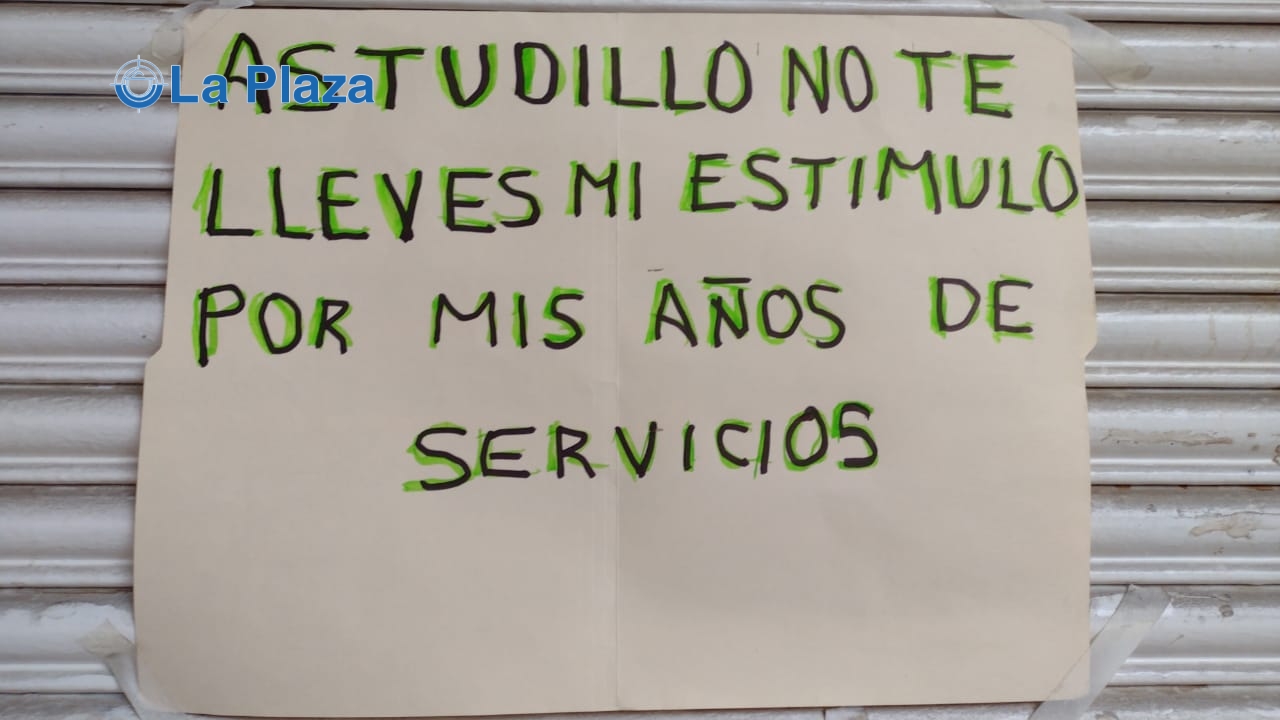 La Plaza
ASTUDILLO NO TE
LLEVES MI ESTIMULO
POR MIS AÑOS DE
SERVICIOS